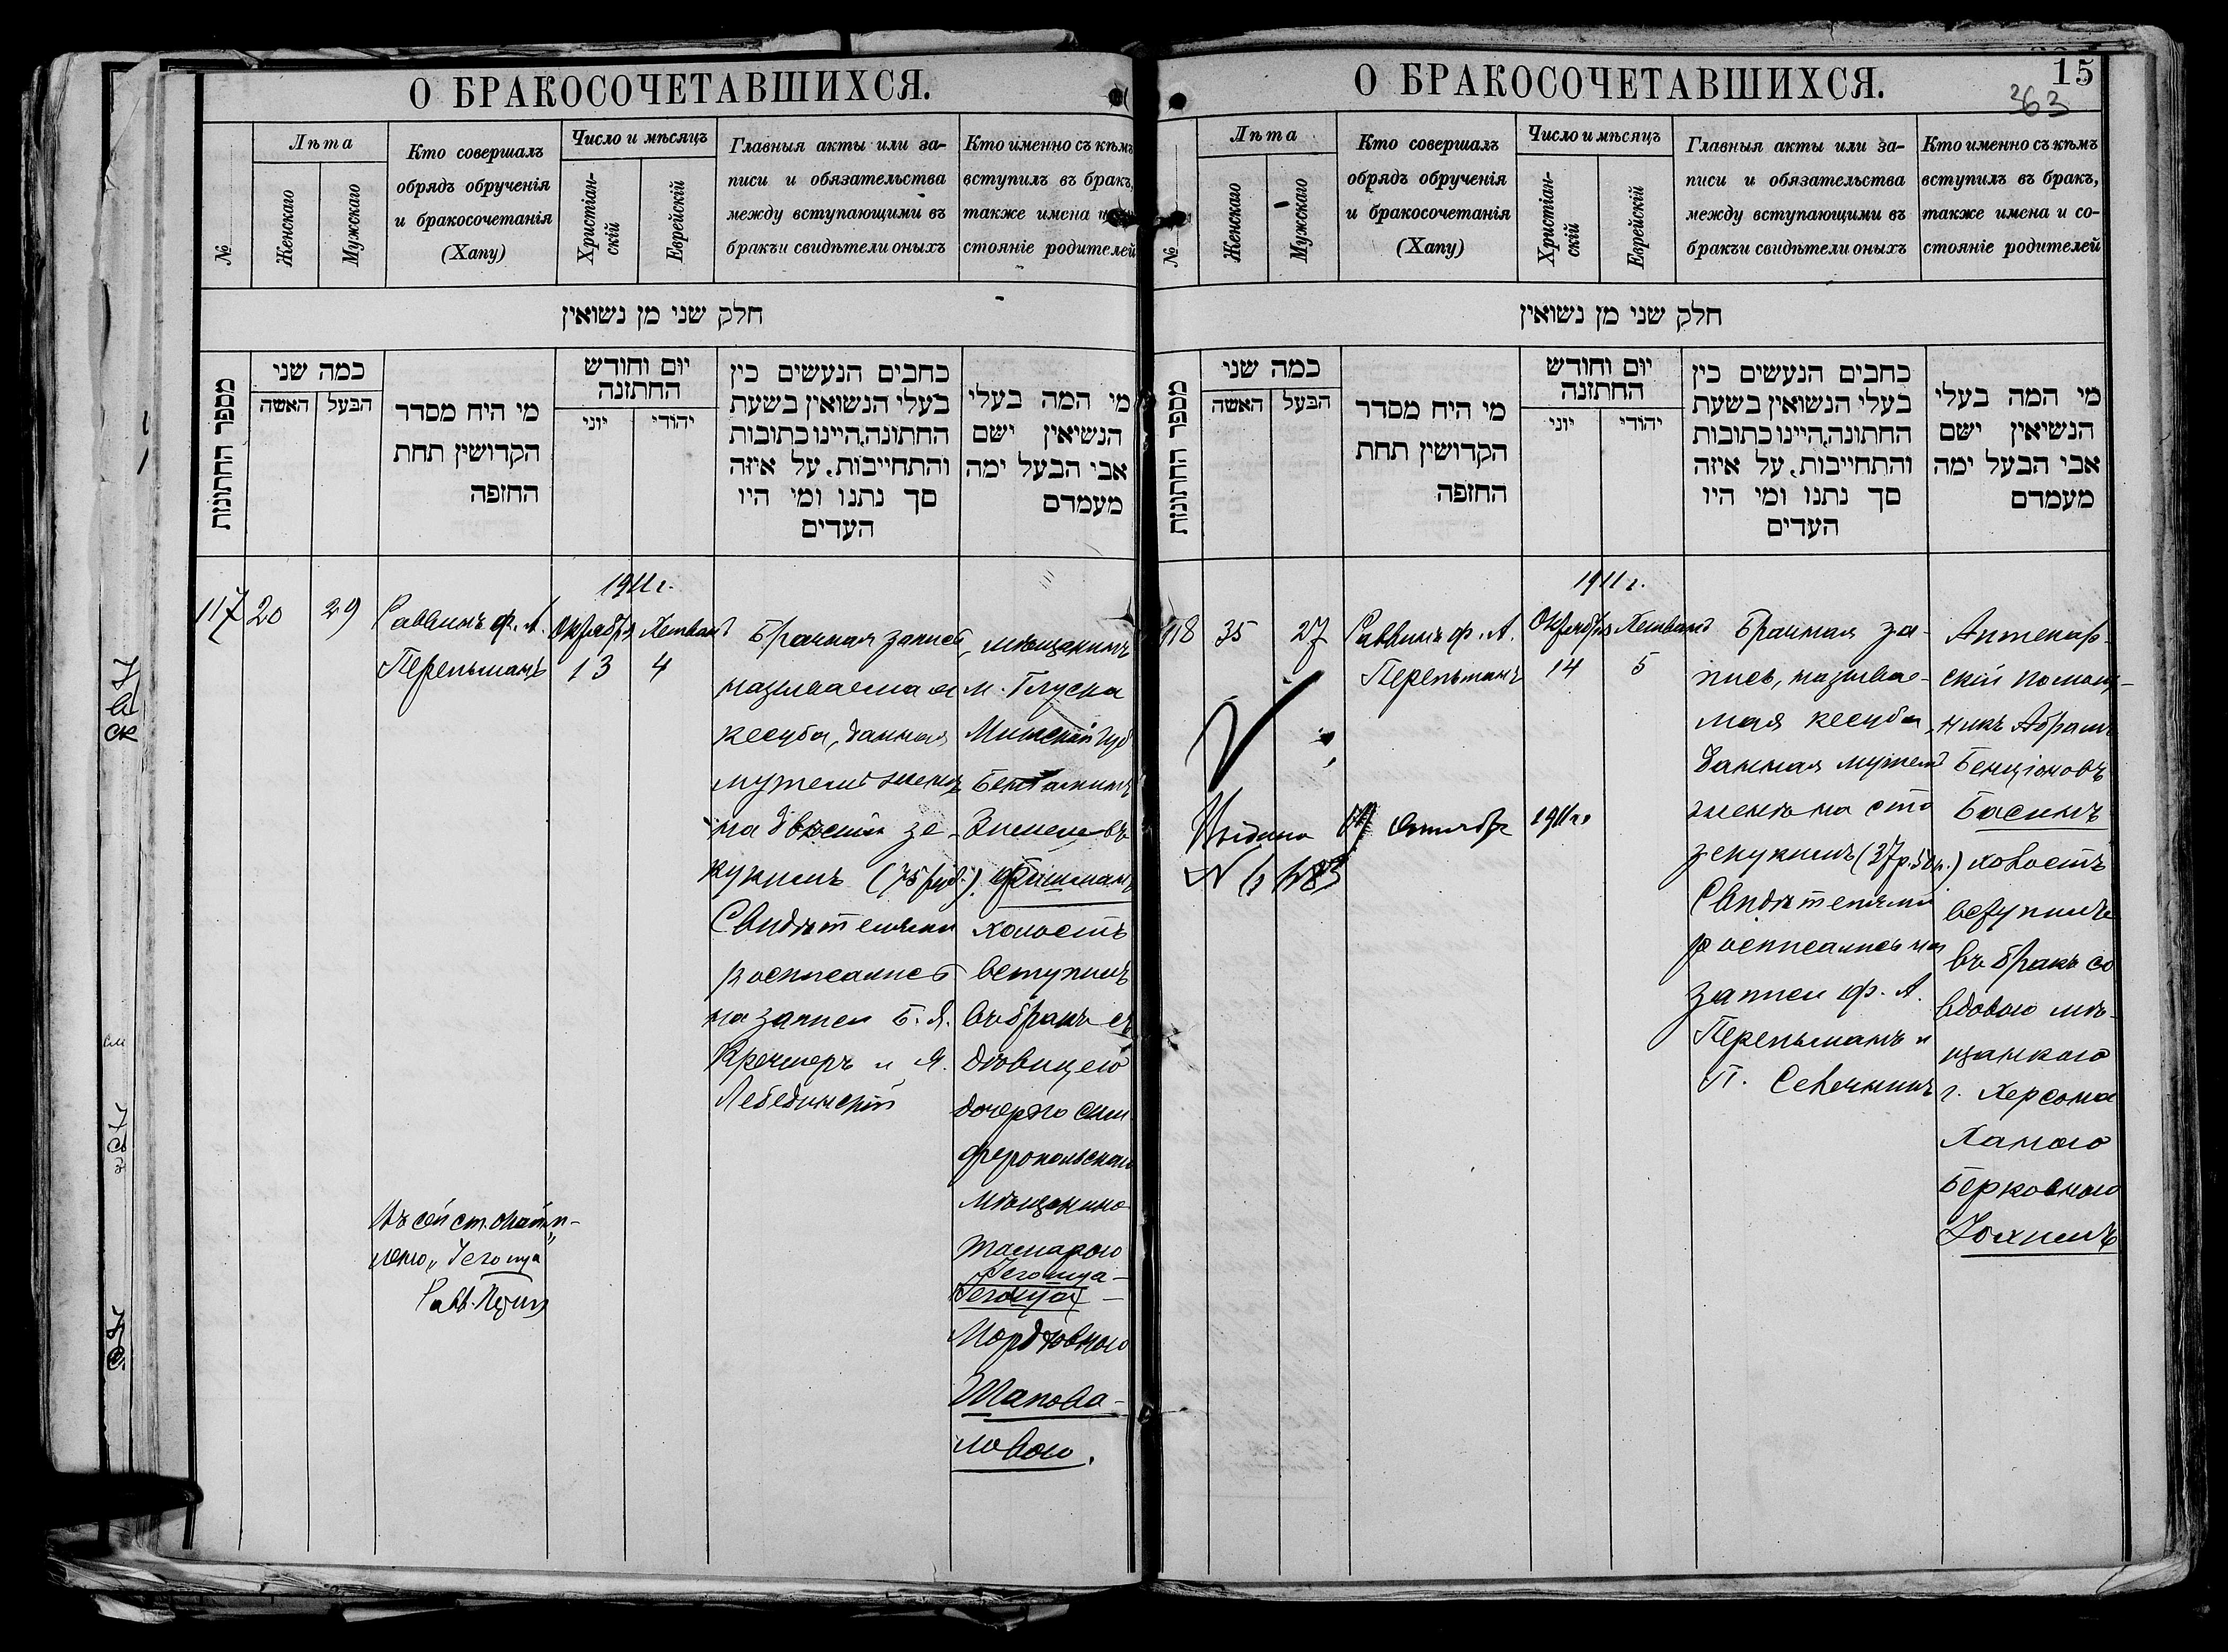 О БРАКОСОЧЕТАВШИХСЯ.
№
Лѣта
Женскаго
Мужскаго
Кто совершалъ
обрядъ обрученія
и бракосочетанія
(Хапу)
Число и мѣсяцъ
Христіан-
скій
Еврейскій
Главныя акты или за-
писи и обязательства
между вступающими въ
бракъи свидѣтели оныхъ
Кто именно съ кѣмъ
вступилъ въ бракъ,
также имена
стояніе родителей
חלק שני מן נשואין
מספר החתונות
כמה שני
האשה
הבעל
מי היח מסדר
הקדושין תחת
החזפה
יום וחודש
החתזנה
יוני
יהודי
כחבים הנעשים כין
בעלי הנשואין בשעת
החתונה,היינו כתובות
והתחייבות, על איזה
סך נתנו ומי היו
העדים
מי המה בעלי
הנשיאין ישם
אבי הבעל ימה
מעמדם
117
20
29
Раввинъ Ф. А.
Перельманъ
1911 г.
Октября
13
Хешванъ
4
Брачная запись,
называемая
кесуба, данная
мужемъ женѣ
на двѣсти зе-
кукимъ (75 руб.).
Свидѣтелями
росписались
на записи Б. Я.
Кречмеръ и Я.
Лебединскій
мѣщанинъ
м. Глуска
Минской губ
Беньяминъ
Зиселевъ
Фишманъ
холостъ
вступилъ
въ бракъ съ
дѣвицею
дочерью сим
феропольскаго
мѣщанина
Тамарою
Мордховною
Шапова-
ловою.
Въ сей ст.
Равв.
О БРАКОСОЧЕТАВШИХСЯ.
15
363
№
Лѣта
Женскаго
Мужскаго
Кто совершалъ
обрядъ обрученія
и бракосочетанія
(Хапу)
Число и мѣсяцъ
Христіан-
скій
Еврейскій
Главныя акты или за-
писи и обязательства
между вступающими въ
бракъи свидѣтели оныхъ
Кто именно съ кѣмъ
вступилъ въ бракъ,
также имена и со-
стояніе родителей
חלק שני מן נשואין
מספר החתונות
כמה שני
האשה
הבעל
מי היח מסדר
הקדושין תחת
החזפה
יום וחודש
החתזנה
יוני
יהודי
כחבים הנעשים כין
בעלי הנשואין בשעת
החתונה,היינו כתובות
והתחייבות, על איזה
סך נתנו ומי היו
העדים
מי המה בעלי
הנשיאין ישם
אבי הבעל ימה
מעמדם
118
35
27
Раввинъ Ф. А.
Перельманъ
1911 г.
Октября
14
Хешванъ
5
Брачная за-
пись, называе-
мая кесуба,
данная мужемъ
женѣ на сто
зекукимъ (37 р. 50 к.)
Свидѣтелями
росписались на
записи Ф. А.
Перельманъ и
П. Севчикъ
Аптекар-
скій помощ-
никъ Абрамъ
Бенціоновъ
Басинъ
холостъ
вступилъ
въ бракъ со
вдовою мѣ-
щанкою
г. Херсона
Ханою
Берковною
Выдана
1911 г.